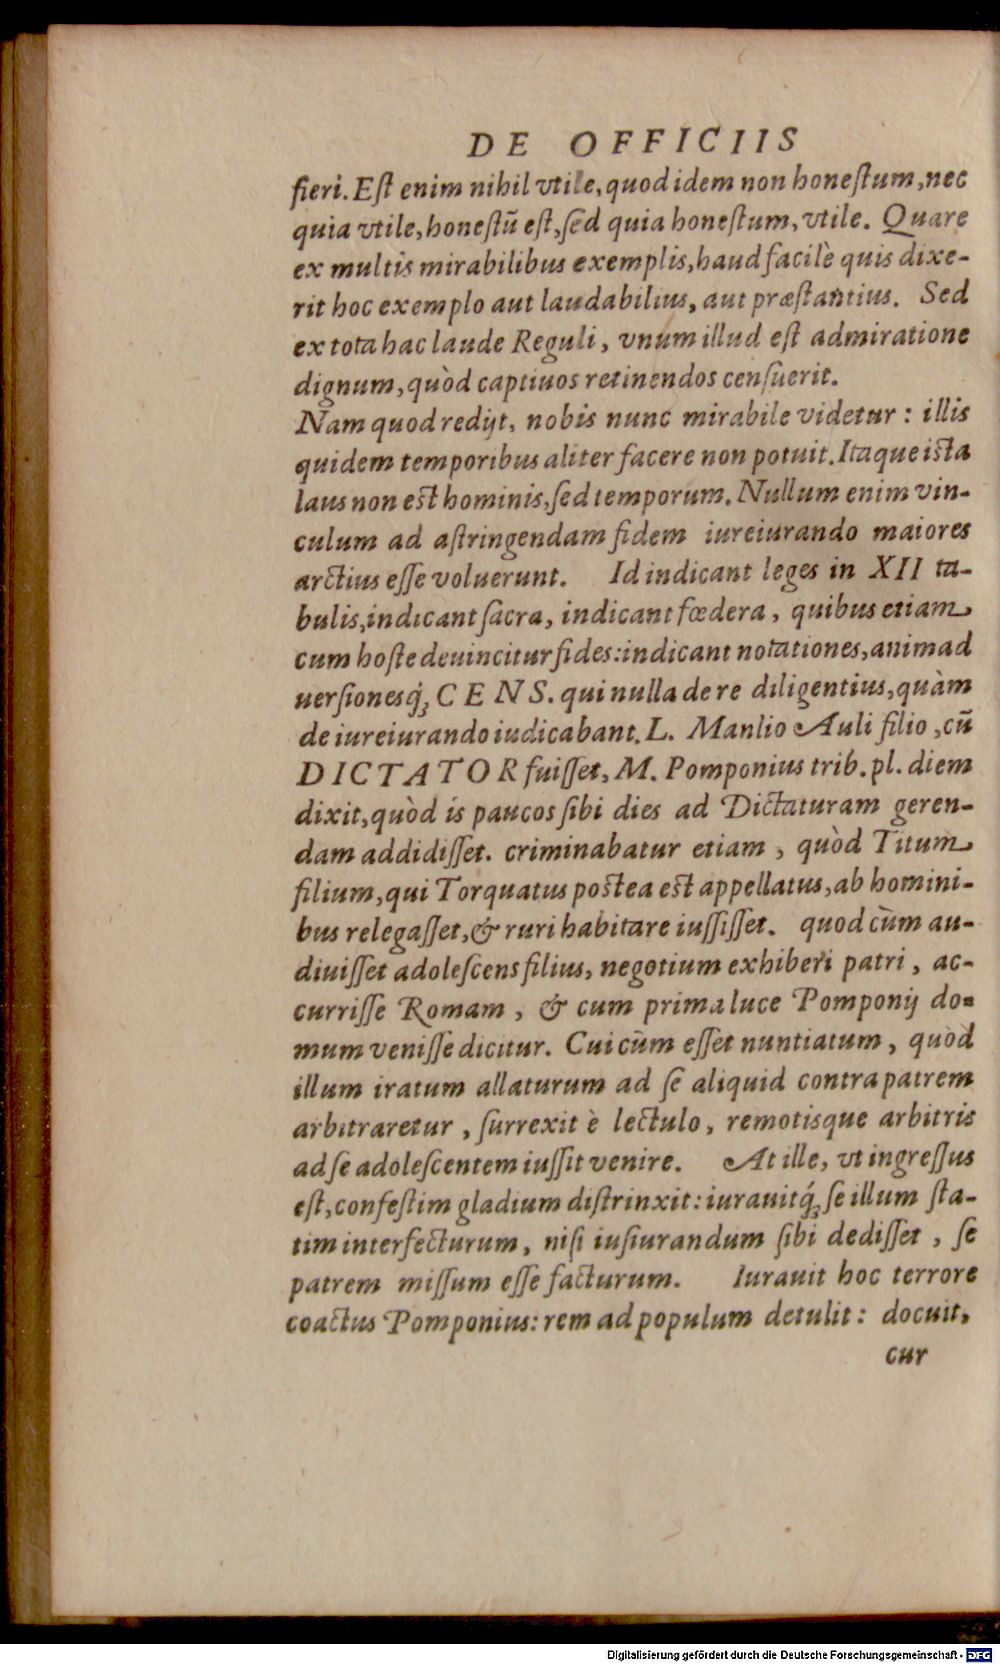 DE OFFICIIS
fieri. Eſt enim nihil vtile, quod idem non honeſtum, nec
quia vtile, honeſtũ eſt, ſed quia honeſtum, vtile. Quare
ex multis mirabilibus exemplis, haud facilè quis dixe-
rit hoc exemplo aut laudabilius, aut præſtantius. Sed
ex tota hac laude Reguli, vnum illud eſt admiratione
dignum, quòd captiuos retinendos cenſuerit.
Nam quod redijt, nobis nunc mirabile videtur: illis
quidem temporibus aliter facere non potuit. Itaque iſta
laus non eſt hominis, ſed temporum. Nullum enim vin-
culum ad aſtringendam fidem iureiurando maiores
arctius eſſe voluerunt. Id indicant leges in XII ta-
bulis, indicant ſacra, indicant fœdera, quibus etiam
cum hoſte deuincitur fides: indicant notationes, animad
uerſionesq́; CENS. qui nulla de re diligentius, quàm
de iureiurando iudicabant. L. Manlio Auli filio, cũ
DICTATOR fuiſſet, M. Pomponius trib. pl. diem
dixit, quòd is paucos ſibi dies ad Dictaturam geren-
dam addidiſſet. criminabatur etiam, quòd Titum
filium, qui Torquatus poſtea eſt appellatus, ab homini-
bus relegaſſet, & ruri habitare iuſſiſſet. quod cùm au-
diuiſſet adoleſcens filius, negotium exhiberi patri, ac-
curriſſe Romam, & cum prima luce Pomponij do-
mum veniſſe dicitur. Cui cùm eſſet nuntiatum, quòd
illum iratum allaturum ad ſe aliquid contra patrem
arbitraretur, ſurrexit è lectulo, remotisque arbitris
ad ſe adoleſcentem iuſſit venire. At ille, vt ingreſſus
eſt, confeſtim gladium diſtrinxit: iurauitq́; ſe illum ſta-
tim interfecturum, niſi iuſiurandum ſibi dediſſet, ſe
patrem miſſum eſſe facturum. Iurauit hoc terrore
coactus Pomponius: rem ad populum detulit: docuit,
cur
Digitalisierung gefördert durch die Deutsche Forschungsgemeinschaft - DFG